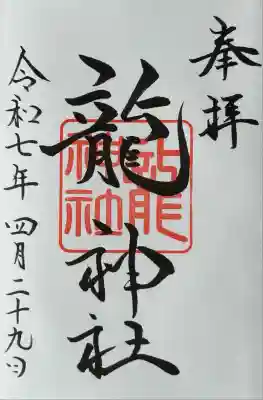 奉拝
龍神社
龍神社
令和七年 四月二十九日